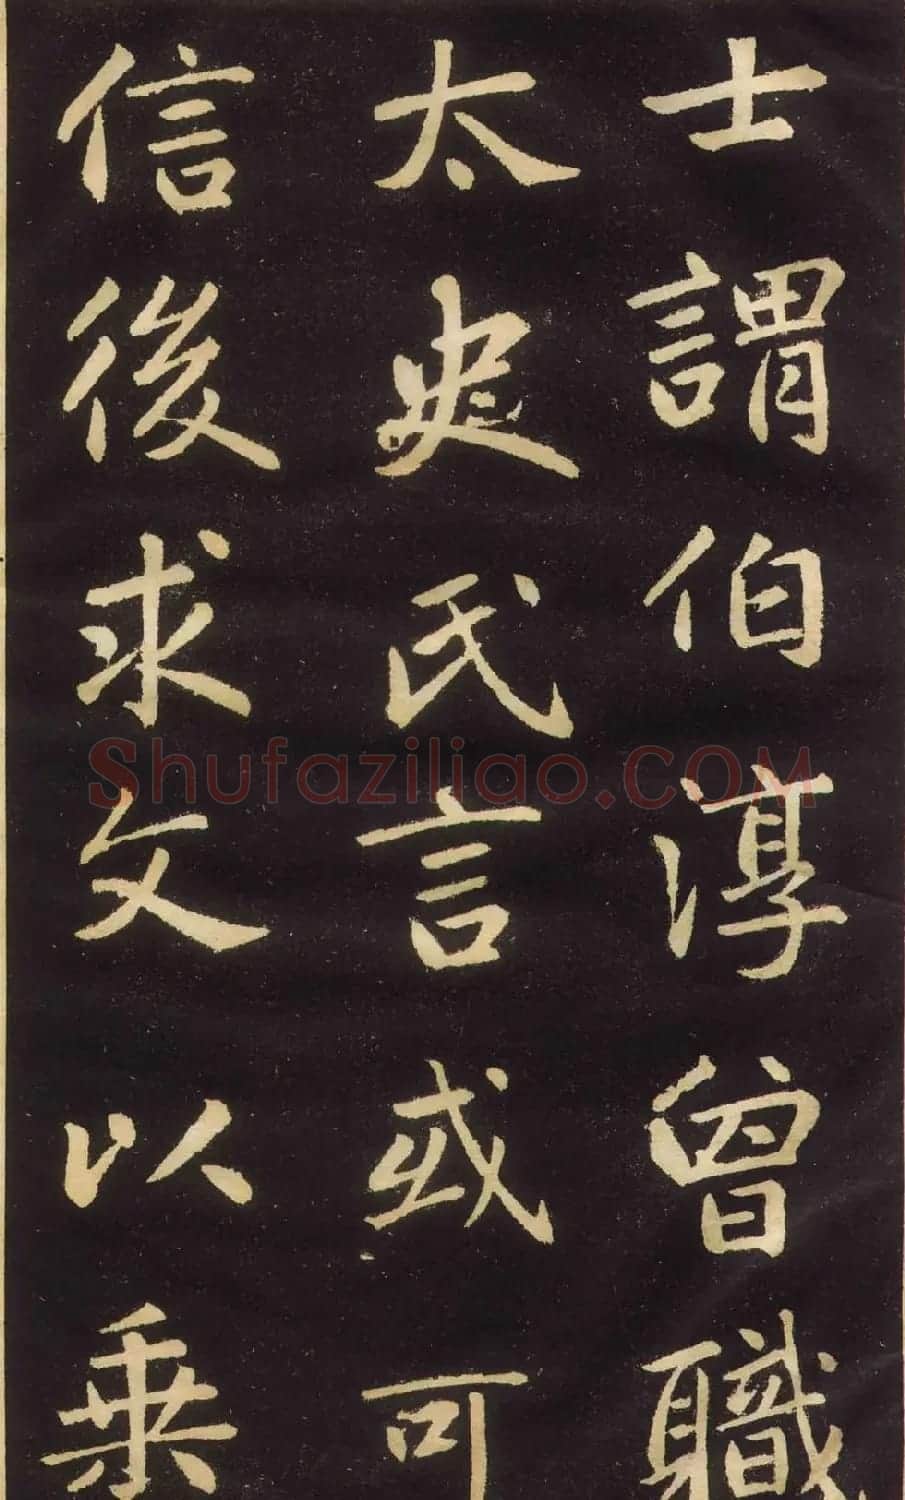 士謂伯淳曾職
太史氏言或可
信後求文以乗
Shufaziliao.COM